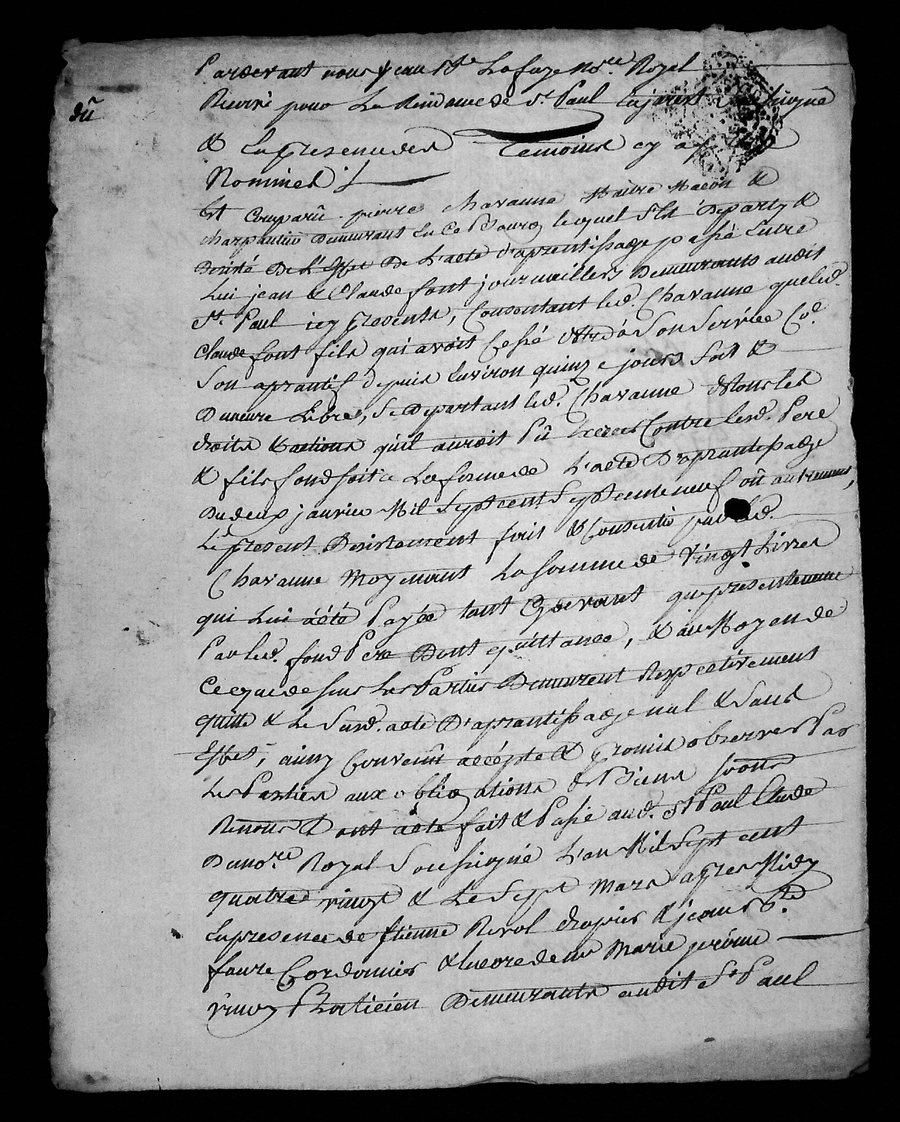 dû
Pardevant nous jean Bte Lafaye Nore Royal
Reservé pour La Residance de St Paul En jarest
& En La presence des Temoins cy a
Nommés
Est Comparû pierre Chavanne Maitre Macon &
charpentier Demeurant En Ce Bourg lequel s'Est Departy &
Desisté De L'Effet De L'acte d'aprentissage passé Entre
Lui jean & Claude font journailliers Demeurants audit
St Paul icy presents, Consentant led. Chavanne que led.
Claude font fils qui avoit Cessé d'être à Son Service Co.
Son aprantif depuis Environ quinze jours Soit &
Demeure Libre, se Departant led. Chavanne de tous les
droits & actions qu'il auroit Pû Exercer Contre lesd. Pere
& fils fond fait En La forme de L'acte D'aprantissage
Du deux janvier Mil Sept cent Septente neuf où autrement,
Le present Desistement fait & Consenti par led.
Chavanne Moyenant La somme de Vingt Livres
qui Lui a été Payée tant Cy devant que presentement
Par led. fond Pere Dont quittance, & au Moyen de
Ce que dessus Les Parties Demeurent Respectivement
quitte & Le Susd. acte D'aprantissage nul & Sans
Effet, ainsy Convenû accépté & promis observer Par
Les Parties aux obligations de Biens
Renonc & dont acte fait & Passé aud. St Paul Etude
Du nore Royal Soussigné L'an Mil Sept cent
quatre vingt & Le Sept Mars apres Midy
En presence de Etienne Revol drapier & jean Bte
faure Cordonnier & encore de Me Marie jerôme
Praticien Demeurants audit St Paul